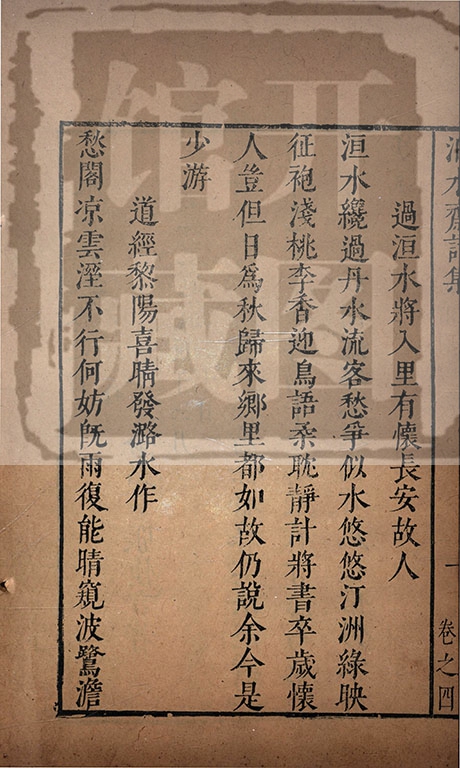 過洹水將入里有懷長安故人
洹水纔過丹水流客愁爭似水悠悠汀洲綠映
征袍淺桃李香迎鳥語柔耽靜計將書卒歲懷
人豈但日爲秋歸來鄉里都如故仍說余今是
少游
道經黎陽喜晴發潞水作
愁閣凉雲溼不行何妨旣雨復能晴窺波鷺澹
卷之四